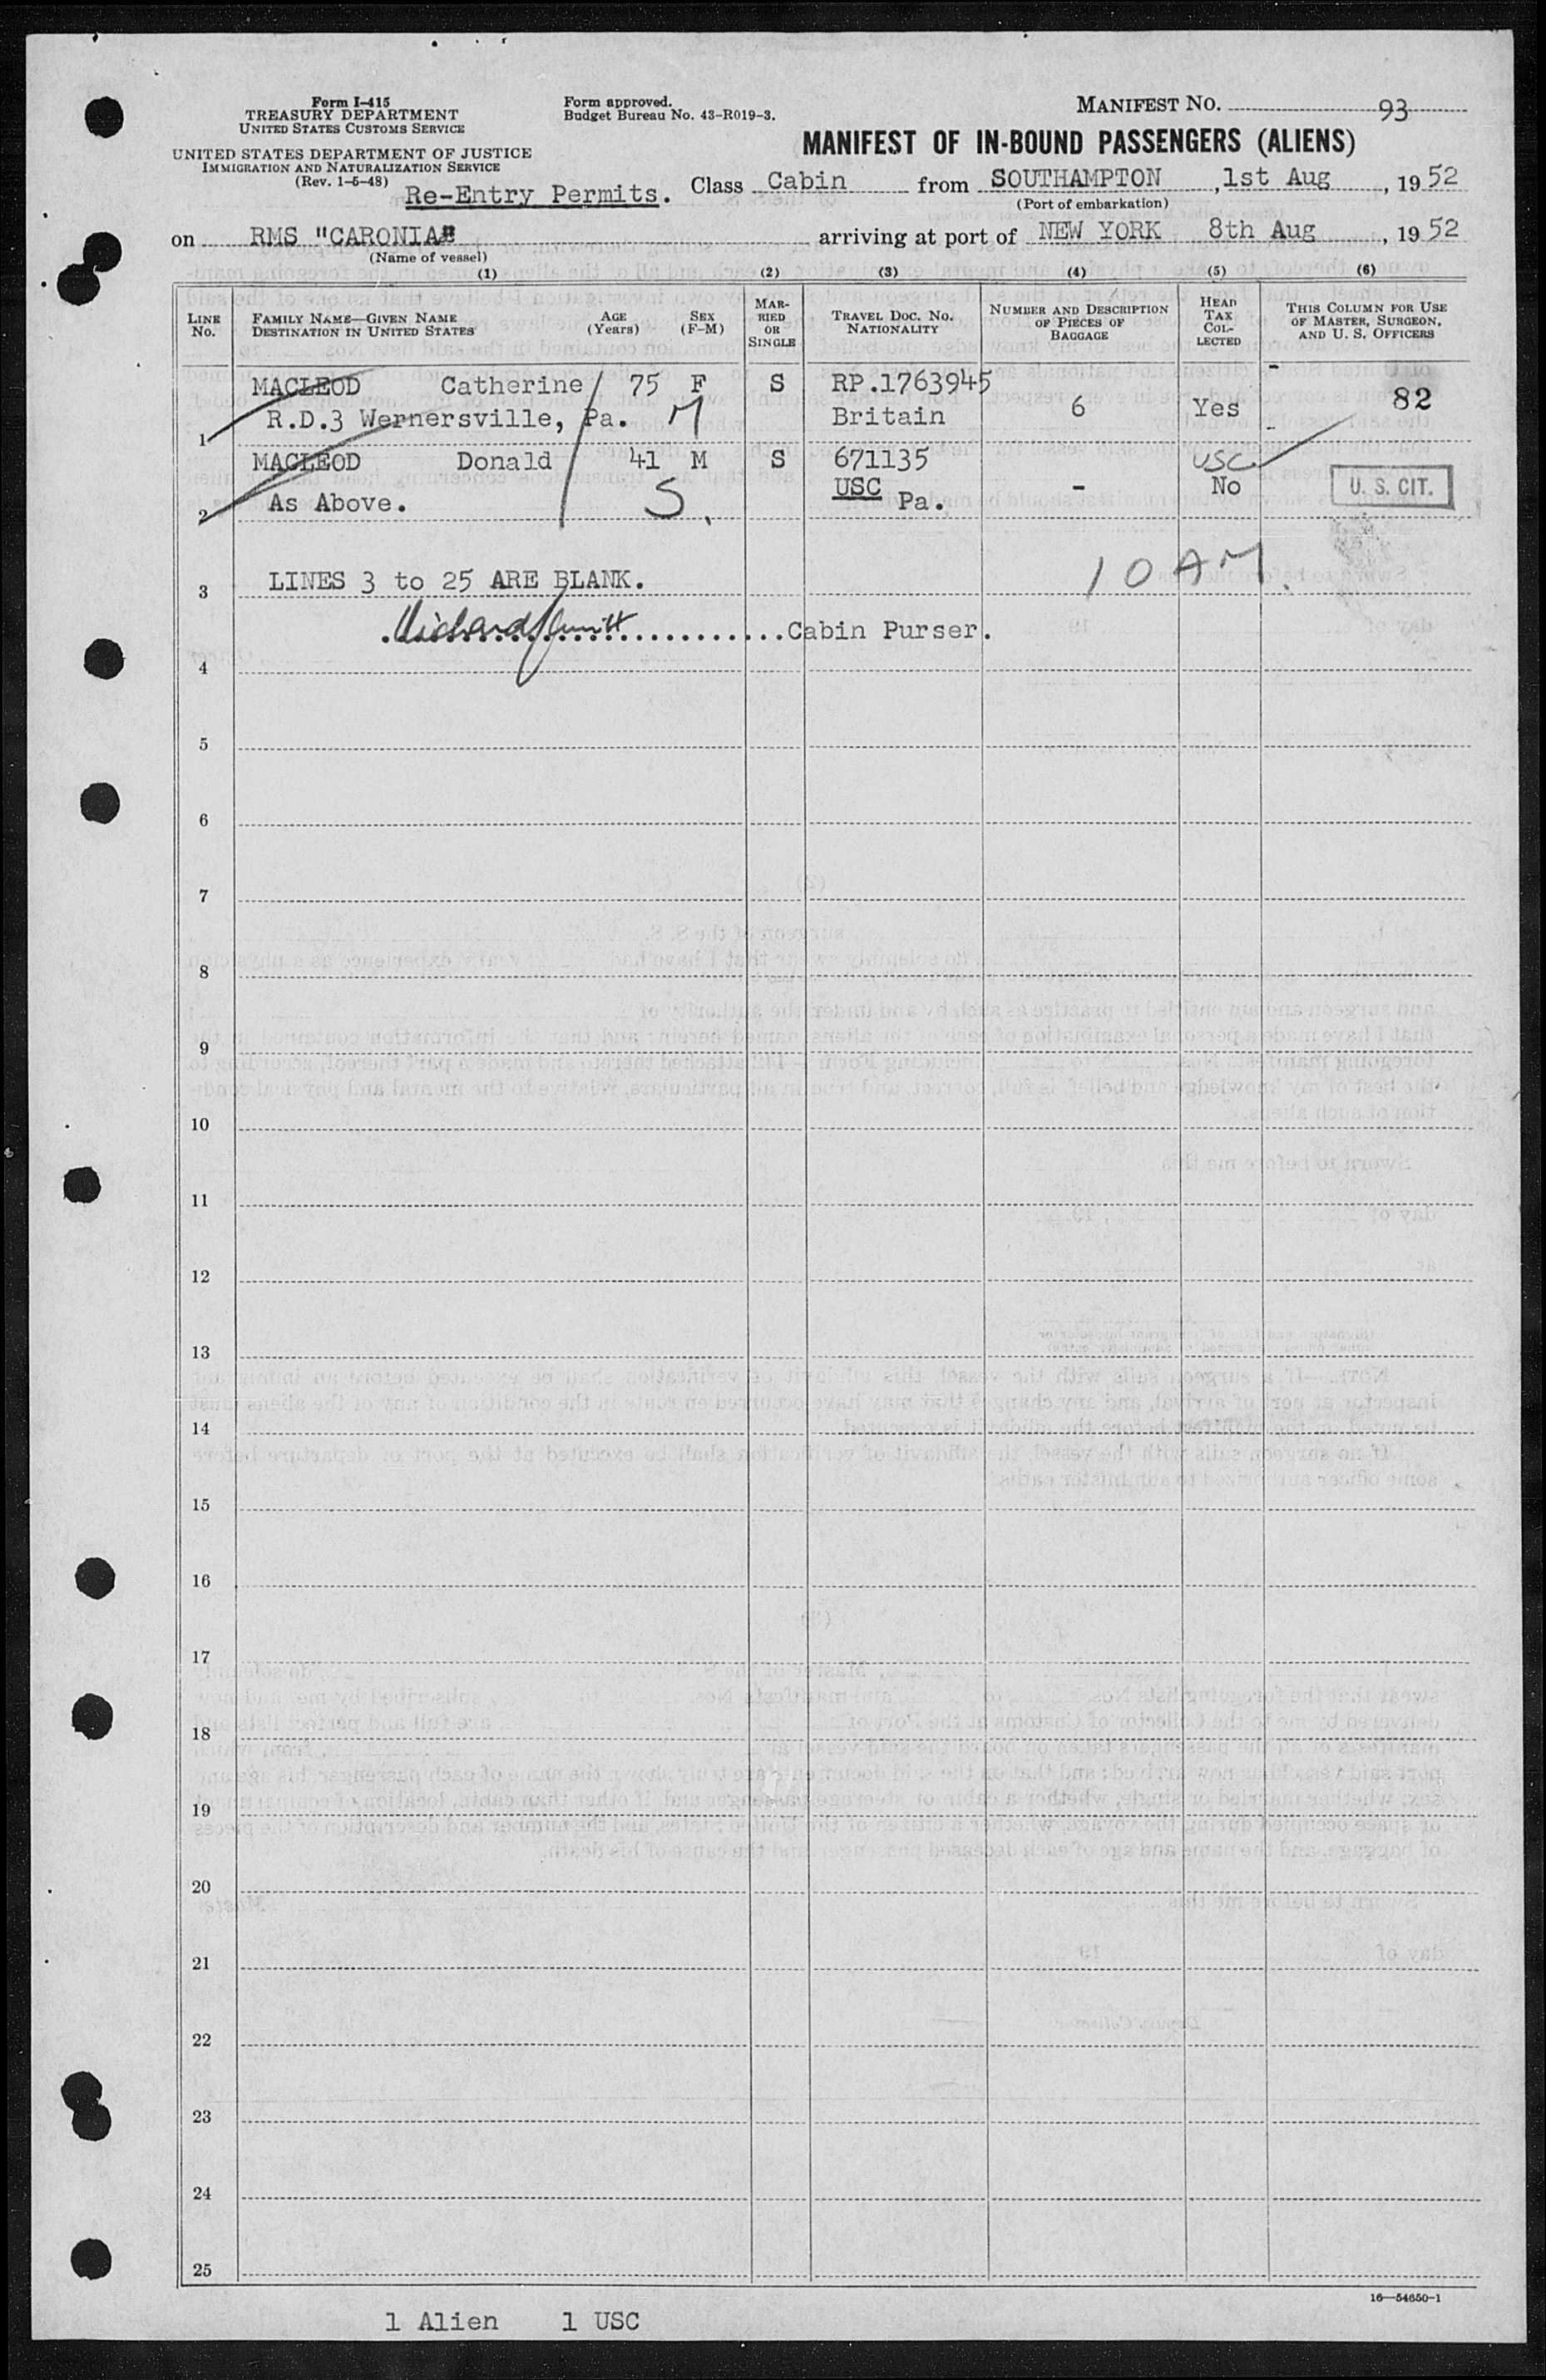 Form I-415
TREASURY DEPARTMENT
UNITED STATES CUSTOMS SERVICE
UNITED STATES DEPARTMENT OF JUSTICE
IMMIGRATION AND NATURALIZATION SERVICE
(Rev. 1-5-48)
Form approved.
Budget Bureau No. 43-R019-3.
MANIFEST No. 93
MANIFEST OF IN-BOUND PASSENGERS (ALIENS)
Re-Entry Permits. Class Cabin from SOUTHAMPTON, 1st Aug, 1952
(Port of embarkation)
on RMS "CARONIA" arriving at port of NEW YORK 8th Aug, 1952
(Name of vessel)
(1) (2) (3) (4) (5) (6)
LINE No. FAMILY NAME—GIVEN NAME DESTINATION IN UNITED STATES AGE (Years) SEX (F-M) MARRIED OR SINGLE TRAVEL DOC. No. NATIONALITY NUMBER AND DESCRIPTION OF PIECES OF BAGGAGE HEAD TAX COLLECTED THIS COLUMN FOR USE OF MASTER, SURGEON, AND U. S. OFFICERS
MACLEOD Catherine 75 F S RP.1763945 -
1 R.D.3 Wernersville, Pa. M Britain 6 Yes - 82
MACLEOD Donald 41 M S 671135 USC
2 As Above. S. USC Pa. - No U. S. CIT.
10 AM.
3 LINES 3 to 25 ARE BLANK.
Cabin Purser.
4
5
6
7
8
9
10
11
12
13
14
15
16
17
18
19
20
21
22
23
24
25
16—54650-1
1 Alien 1 USC